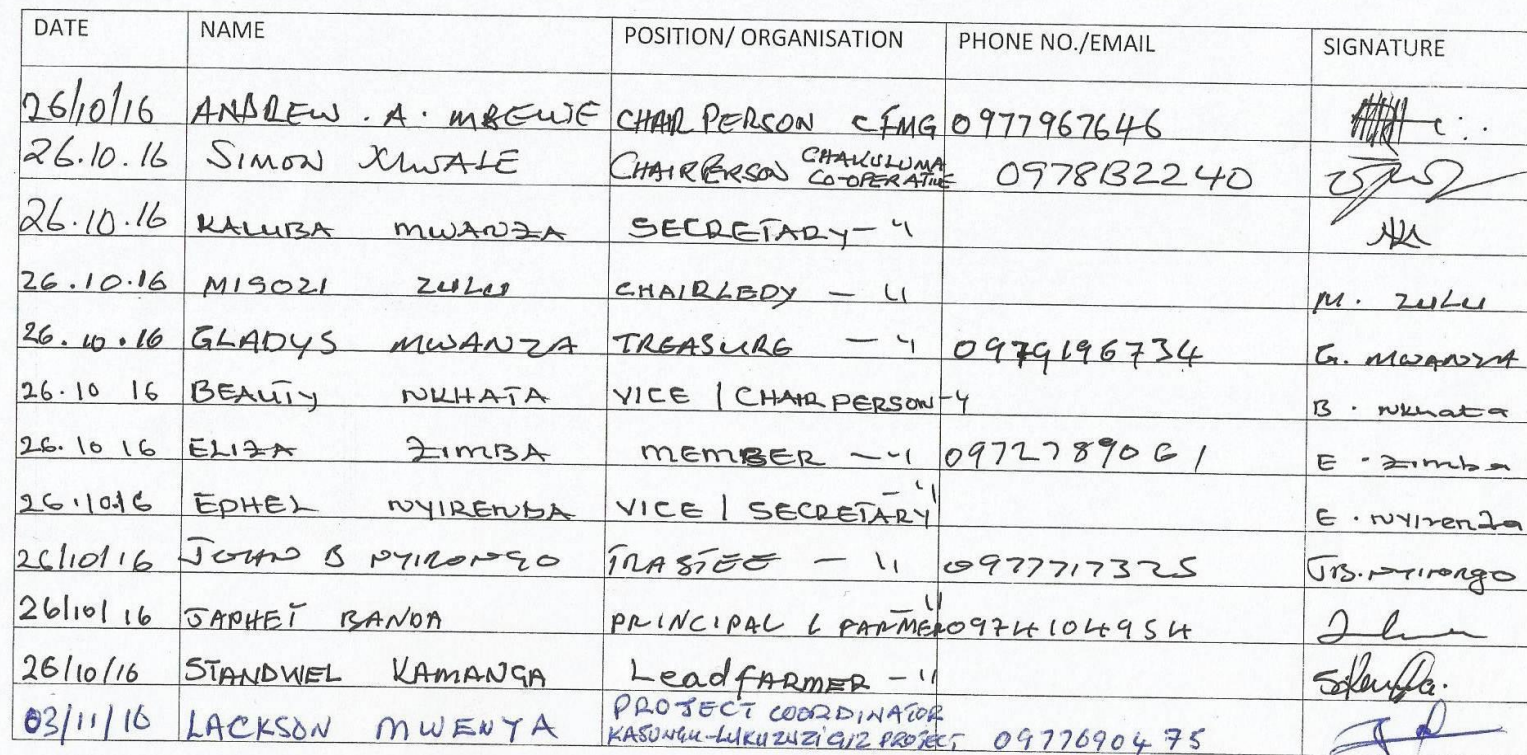 DATE NAME POSITION/ ORGANISATION PHONE NO./EMAIL SIGNATURE
26/10/16 ANDREW . A . MBEWE CHAIRPERSON CFMG 0977967646
26.10.16 SIMON CHAIRPERSON CHAKULUMA CO-OPERATIVE 0978132240
26.10.16 KALUBA MWANZA SECRETARY - "
26.10.16 MISOZI ZULU CHAIRLEDY - " M. ZULU
26.10.16 GLADYS MWANZA TREASURE - " 0979196734 G. MWANZA
26.10 16 BEAUTY NKHATA VICE / CHAIRPERSON - " B . Nkhata
26.10 16 ELIZA ZIMBA MEMBER - " 0972789061 E . Zimba
26.10.16 EPHEL NYIRENDA VICE / SECRETARY - " E . Nyirenda
26/10/16 JOHN B NYIRONGO TRASTEE - " 0977717325 J.B. Nyirongo
26/10/16 JAPHET BANDA PRINCIPAL L FARMER - " 0974104954
26/10/16 STANDWEL KAMANGA Lead FARMER - "
03/11/16 LACKSON MWENYA PROJECT COORDINATOR KASUNGU-LUKUZUZI PROJECT 0977690475